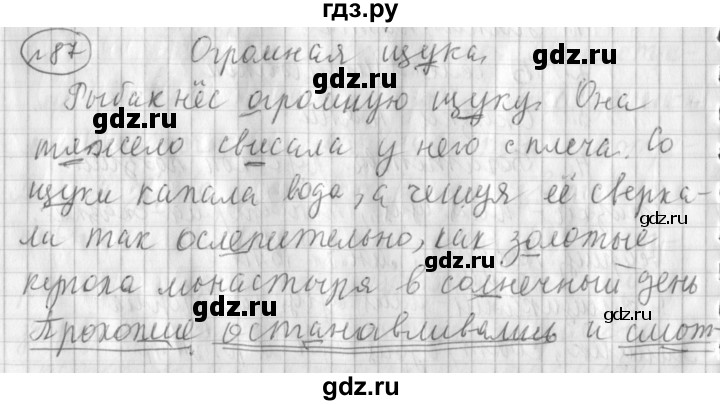 гдз.ру
n 87 Огромная щука.
gdz.ru
Рыбак нёс огромную щуку. Она
gdz.ru
тяжело свисала у него с плеча. Со
щуки капала вода, а чешуя её сверка-
gdz.ru
ли так ослепительно, как золотые
gdz.ru
купола монастыря в солнечный день
gdz.ru
Прохожие останавливались и смот-
gdz.ru